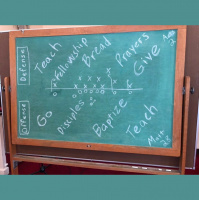 Defense
Teach
Fellowship
Bread
Prayers
Give
Offense
Go
Disciples
Baptize
Teach